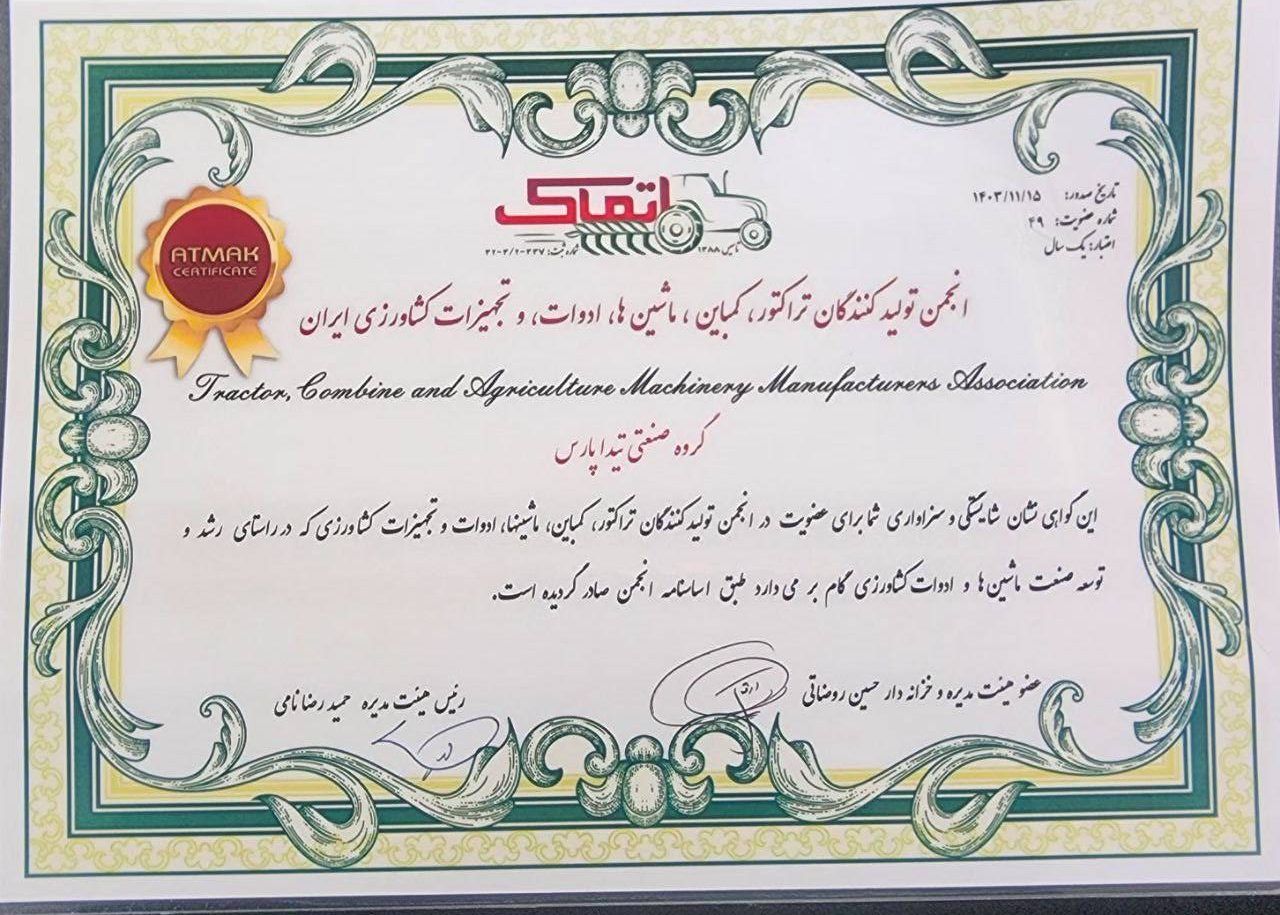 تاریخ صدور: ۱۴۰۳/۱۱/۱۵
شماره عضویت: ۴۹
اعتبار: یک سال
اتماک
تاسیس ۱۳۸۸
شماره ثبت: ۳۲-۳/۲-۳۳۷
ATMAK
CERTIFICATE
انجمن تولید کنندگان تراکتور، کمباین، ماشین ها، ادوات، و تجهیزات کشاورزی ایران
Tractor, Combine and Agriculture Machinery Manufacturers Association
گروه صنعتی تیدا پارس
این گواهی نشان شایستگی و سزاواری شما برای عضویت در انجمن تولید کنندگان تراکتور، کمباین، ماشینها، ادوات و تجهیزات کشاورزی که در راستای رشد و
توسعه صنعت ماشین ها و ادوات کشاورزی گام بر می دارد طبق اساسنامه انجمن صادر گردیده است.
عضو هیئت مدیره و خزانه دار حسین روضاتی
رئیس هیئت مدیره حمید رضا نامی